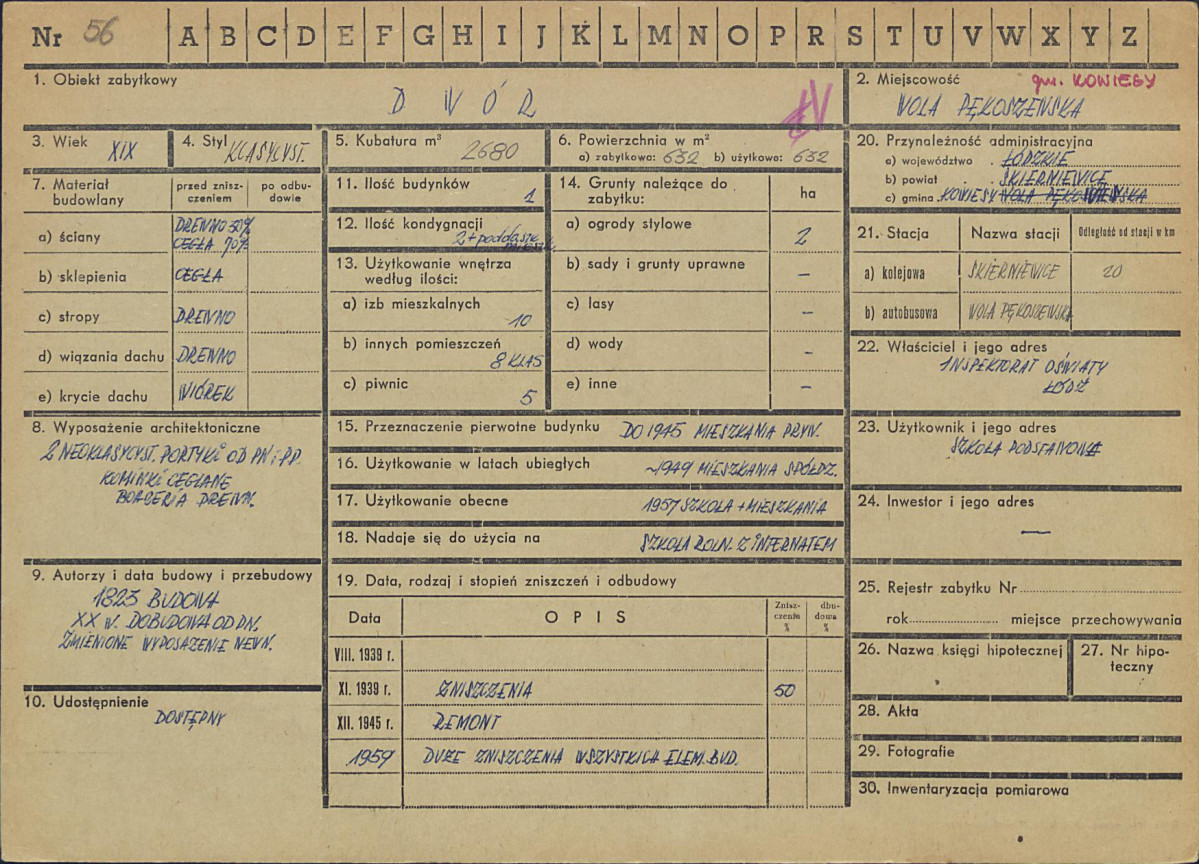 Nr 56 A B C D E F G H I J K L M N O P R S T U V W X Y Z
1. Obiekt zabytkowy
D W Ó R
2. Miejscowość gm. KOWIESY
WOLA PĘKOSZEWSKA
3. Wiek XIX
4. Styl KLASYCYST.
5. Kubatura m³ 2680
6. Powierzchnia w m²
a) zabytkowa: 632 b) użytkowa: 632
20. Przynależność administracyjna
a) województwo . ŁÓDZKIE
b) powiat . SKIERNIEWICE
c) gmina KOWIESY WOLA PĘKOSZEWSKA
7. Materiał budowlany
przed znisz-
czeniem
po odbu-
dowie
a) ściany DREWNO 30%
CEGŁA 70%
b) sklepienia CEGŁA
c) stropy DREWNO
d) wiązania dachu DREWNO
e) krycie dachu WIÓREK
11. Ilość budynków 1
12. Ilość kondygnacji
2 + poddasze
13. Użytkowanie wnętrza
według ilości:
a) izb mieszkalnych
10
b) innych pomieszczeń
8 KLAS
c) piwnic
5
14. Grunty należące do
zabytku:
ha
a) ogrody stylowe 2
b) sady i grunty uprawne –
c) lasy –
d) wody –
e) inne –
21. Stacja Nazwa stacji Odległość od stacji w km
a) kolejowa SKIERNIEWICE 20
b) autobusowa WOLA PĘKOSZEWSKA
22. Właściciel i jego adres
INSPEKTORAT OŚWIATY
ŁÓDŹ
8. Wyposażenie architektoniczne
2 NEOKLASYCYST. PORTYKI OD PN i PD.
KOMINKI CEGLANE
BOAZERIA DREWN.
15. Przeznaczenie pierwotne budynku DO 1945 MIESZKANIA PRYW.
16. Użytkowanie w latach ubiegłych ~1949 MIESZKANIA SPÓŁDZ.
17. Użytkowanie obecne 1957 SZKOŁA + MIESZKANIA
18. Nadaje się do użycia na SZKOŁA ROLN. Z INTERNATEM
23. Użytkownik i jego adres
SZKOŁA PODSTAWOWA
24. Inwestor i jego adres
—
9. Autorzy i data budowy i przebudowy
1823 BUDOWA
XX w. DOBUDOWA OD PN.
ZMIENIONE WYPOSAŻENIE WEWN.
19. Data, rodzaj i stopień zniszczeń i odbudowy
Data O P I S
Znisz-
czenia
%
dbu-
dowa
%
VIII. 1939 r.
XI. 1939 r. ZNISZCZENIA 50
XII. 1945 r. REMONT
1959 DUŻE ZNISZCZENIA WSZYSTKICH ELEM. BUD.
10. Udostępnienie
DOSTĘPNY
25. Rejestr zabytku Nr
rok miejsce przechowywania
26. Nazwa księgi hipotecznej
27. Nr hipo-
teczny
28. Akta
29. Fotografie
30. Inwentaryzacja pomiarowa